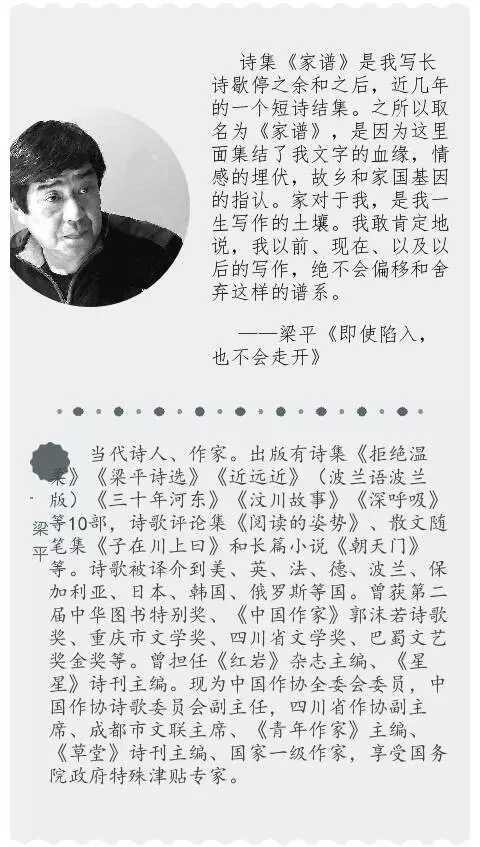 诗集《家谱》是我写长
诗歇停之余和之后，近几年
的一个短诗结集。之所以取
名为《家谱》，是因为这里
面集结了我文字的血缘，情
感的埋伏，故乡和家国基因
的指认。家对于我，是我一
生写作的土壤。我敢肯定地
说，我以前、现在、以及以
后的写作，绝不会偏移和舍
弃这样的谱系。
——梁平《即使陷入，
也不会走开》
梁平
当代诗人、作家。出版有诗集《拒绝温
柔》《梁平诗选》《近远近》（波兰语波兰
版）《三十年河东》《汶川故事》《深呼吸》
等10部，诗歌评论集《阅读的姿势》、散文随
笔集《子在川上曰》和长篇小说《朝天门》
等。诗歌被译介到美、英、法、德、波兰、保
加利亚、日本、韩国、俄罗斯等国。曾获第二
届中华图书特别奖、《中国作家》郭沫若诗歌
奖、重庆市文学奖、四川省文学奖、巴蜀文艺
奖金奖等。曾担任《红岩》杂志主编、《星
星》诗刊主编。现为中国作协全委会委员，中
国作协诗歌委员会副主任，四川省作协副主
席、成都市文联主席、《青年作家》主编、
《草堂》诗刊主编、国家一级作家，享受国务
院政府特殊津贴专家。